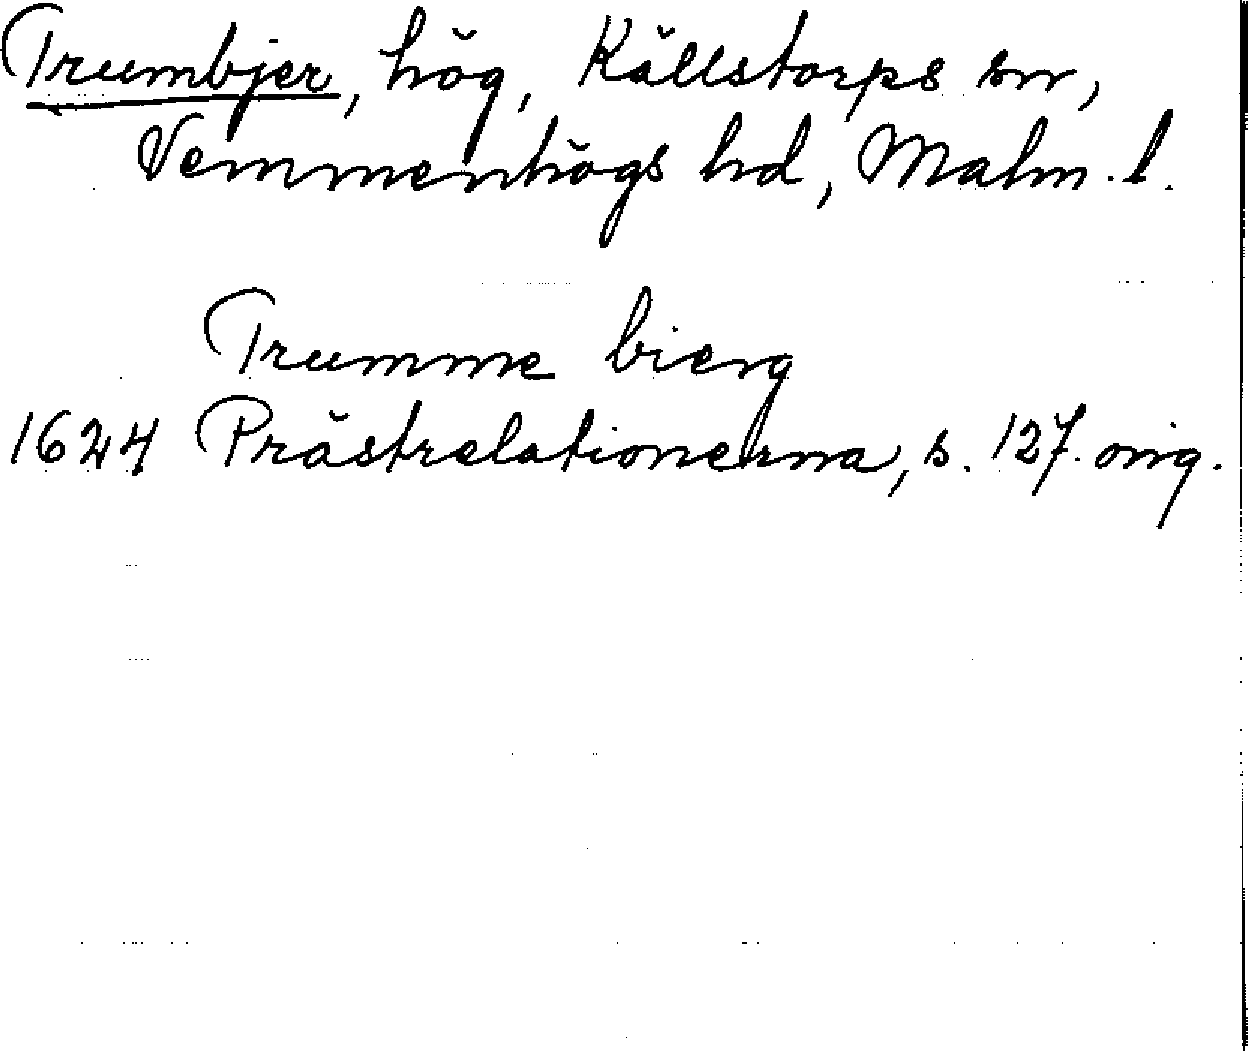 Trumbjer, hög, Källstorps sn,
Vemmenhögs hd, Malm. l.
Trumme bierg
1624 Prästrelationerna, s. 127. orig.